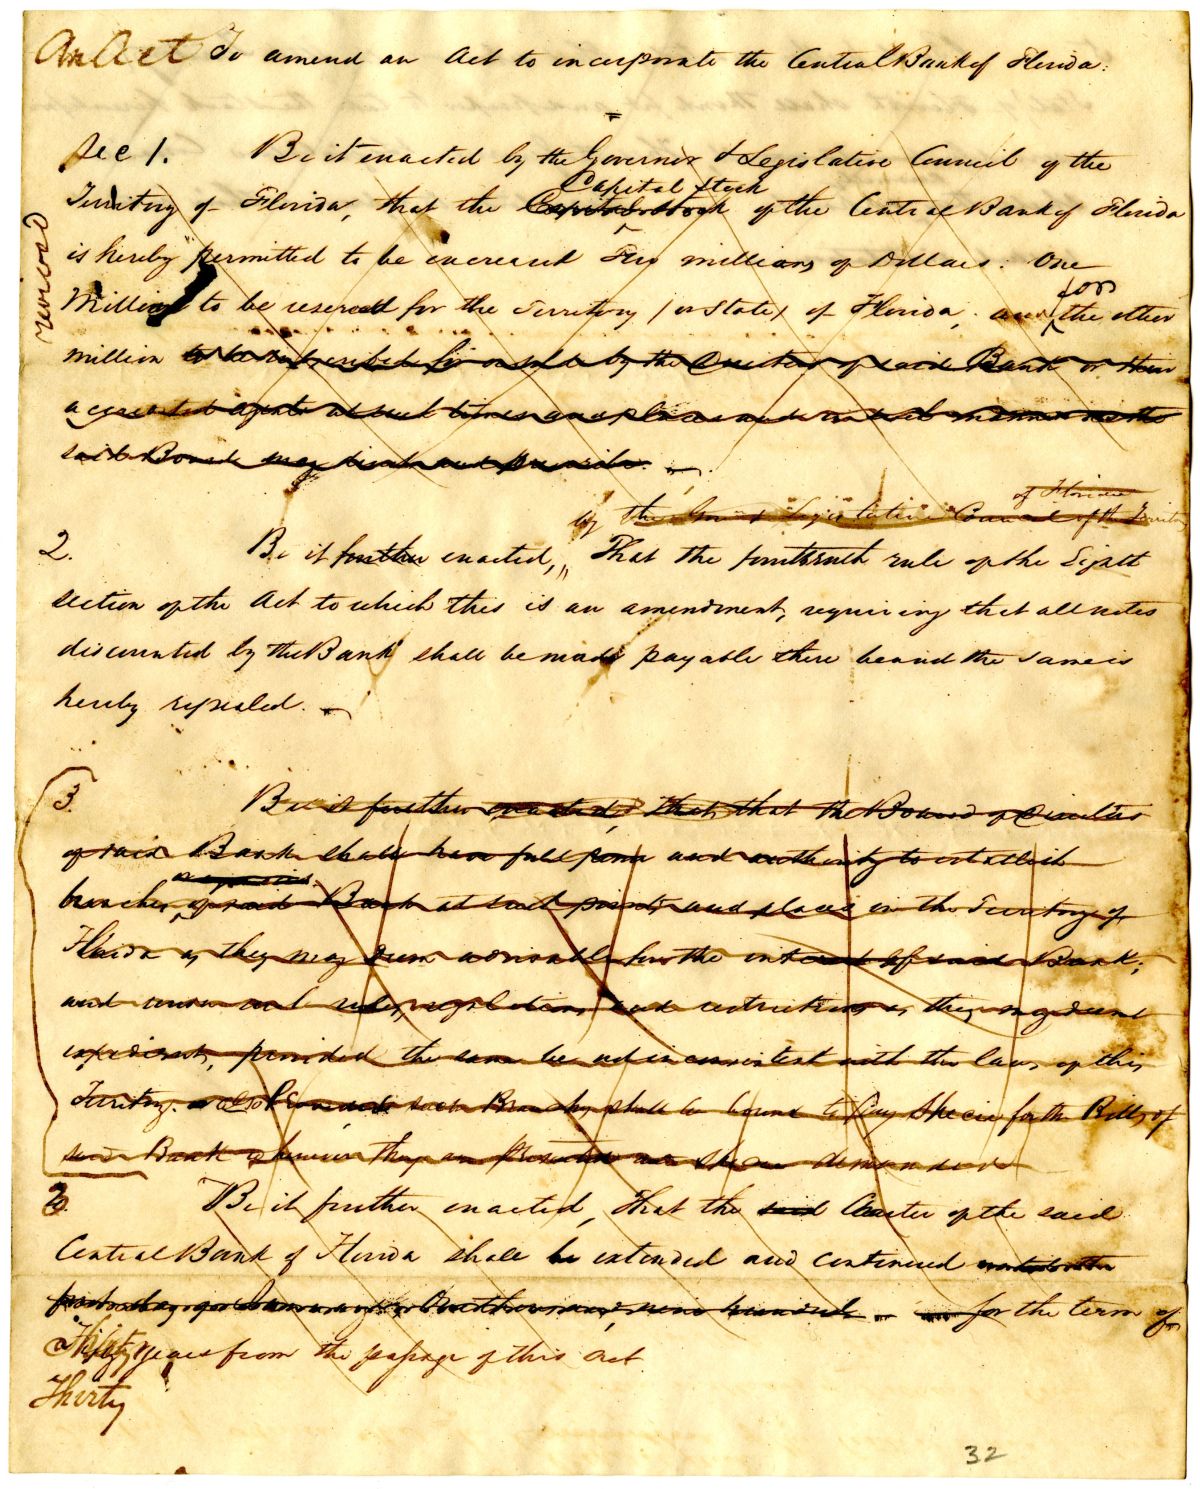 An Act To amend an Act to incorporate the Central Bank of Florida.
Sec 1. Be it enacted by the Governor & Legislative Council of the
Capital Stock
Territory of Florida, that the Capital Stock of the Central Bank of Florida
is hereby permitted to be increased Two millions of Dollars: One
Million to be reserved for the Territory (or State) of Florida, and the other
for
million to be subscribed for or sold by the Directors of said Bank or their
agents at such times and places and in such manner as the
said Board may direct and prescribe.
of Florida
by the Gov & Legislative Council of the Territory
2. Be it further enacted, That the fourteenth rule of the Eighth
section of the Act to which this is an amendment, requiring that all notes
discounted by the Bank shall be made payable there be and the same is
hereby repealed.
3. Be it further enacted, that the Board of Directors
of said Bank shall have full power and authority to establish
branches of said Bank at such points and places in the Territory of
Florida as they may deem advisable for the interest of said Bank,
and under such rules, regulations and restrictions as they may deem
expedient, provided the same be not inconsistent with the laws of this
Territory. also Provided such Branches shall be bound to pay Specie for the Bills of
said Bank whenever they are presented and specie demanded
Be it further enacted, That the said Charter of the said
Central Bank of Florida shall be extended and continued until the
first day of January One thousand nine hundred for the term of
years from the passage of this Act
Thirty
revised
32